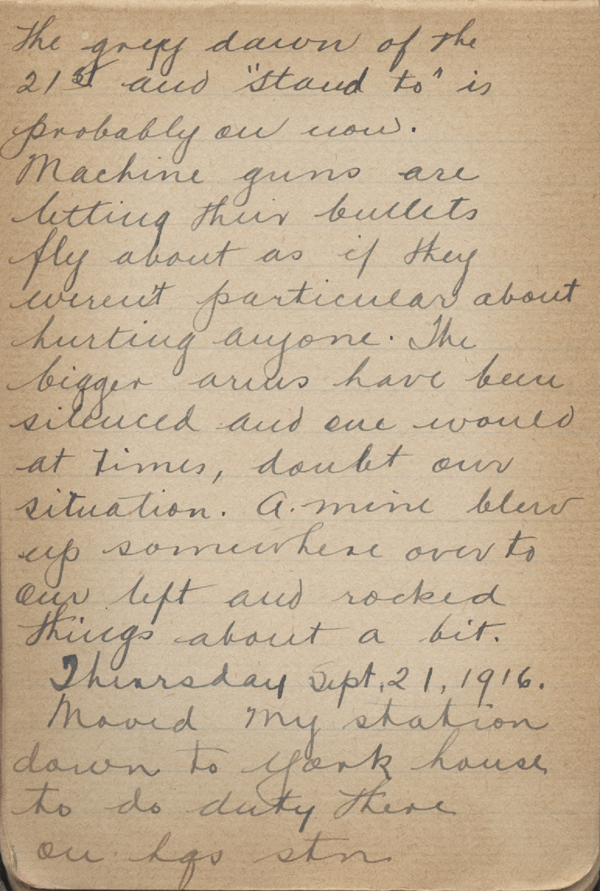 The grey dawn of the
21st and "Stand to" is
probably on now.
Machine guns are
letting their bullets
fly about as if they
weren't particular about
hurting anyone. The
bigger arms have been
silenced and one would
at times, doubt our
situation. A mine blew
up somewhere over to
our left and rocked
things about a bit.
Thursday Sept. 21, 1916.
Moved my station
down to York house
to do duty there
on hqs stn